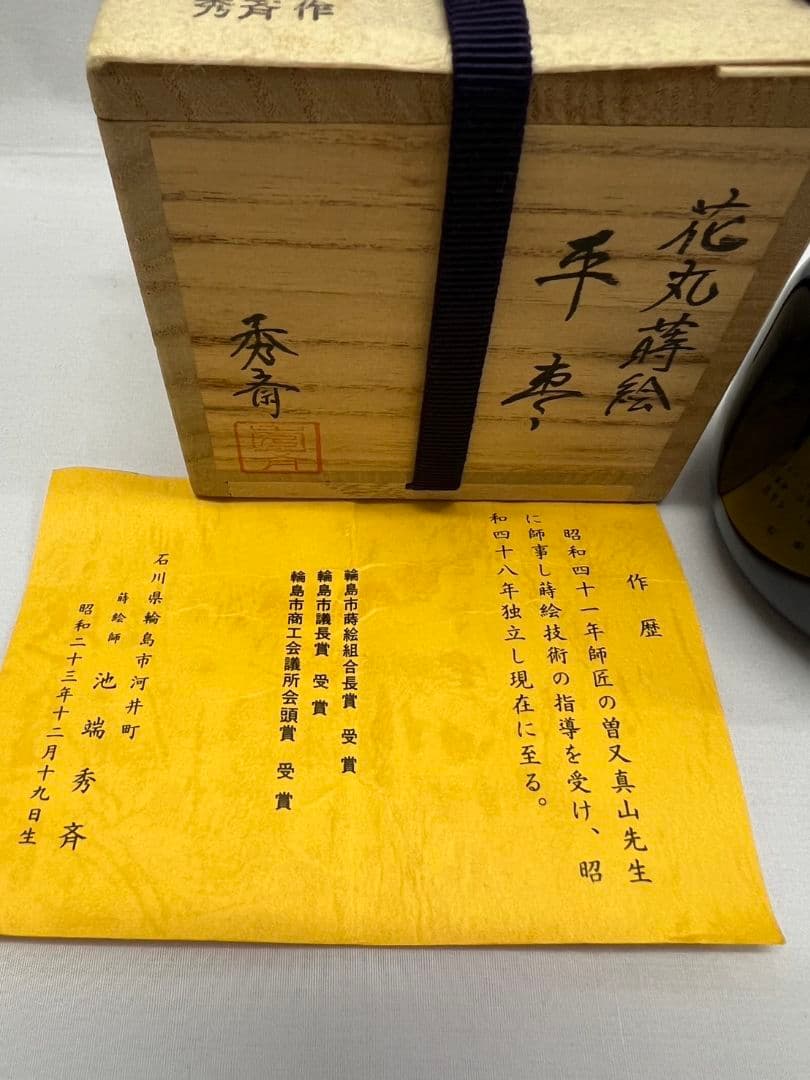 秀斉作
花丸蒔絵
平棗
秀斎
作歴
昭和四十一年師匠の曽又真山先生
に師事し蒔絵技術の指導を受け、昭
和四十八年独立し現在に至る。
輪島市蒔絵組合長賞 受賞
輪島市議長賞 受賞
輪島市商工会議所会頭賞 受賞
石川県輪島市河井町
蒔絵師 池端秀斉
昭和二十三年十二月十九日生